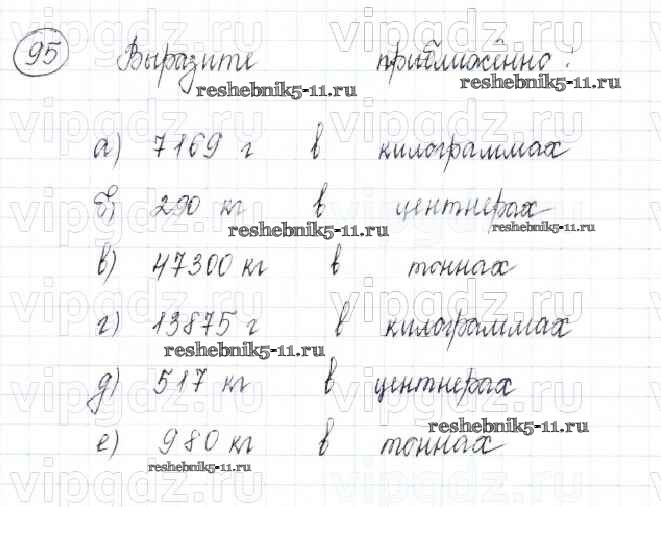 95 Выразите приближённо:
reshebnik5-11.ru reshebnik5-11.ru
а) 7169 г в килограммах
б) 290 кг в центнерах
reshebnik5-11.ru reshebnik5-11.ru
в) 47300 кг в тоннах
г) 13875 г в килограммах
reshebnik5-11.ru
д) 517 кг в центнерах
reshebnik5-11.ru
е) 980 кг в тоннах
reshebnik5-11.ru
vipgdz.ru vipgdz.ru
vipgdz.ru vipgdz.ru
vipgdz.ru vipgdz.ru
vipgdz.ru vipgdz.ru
vipgdz.ru vipgdz.ru
vipgdz.ru vipgdz.ru